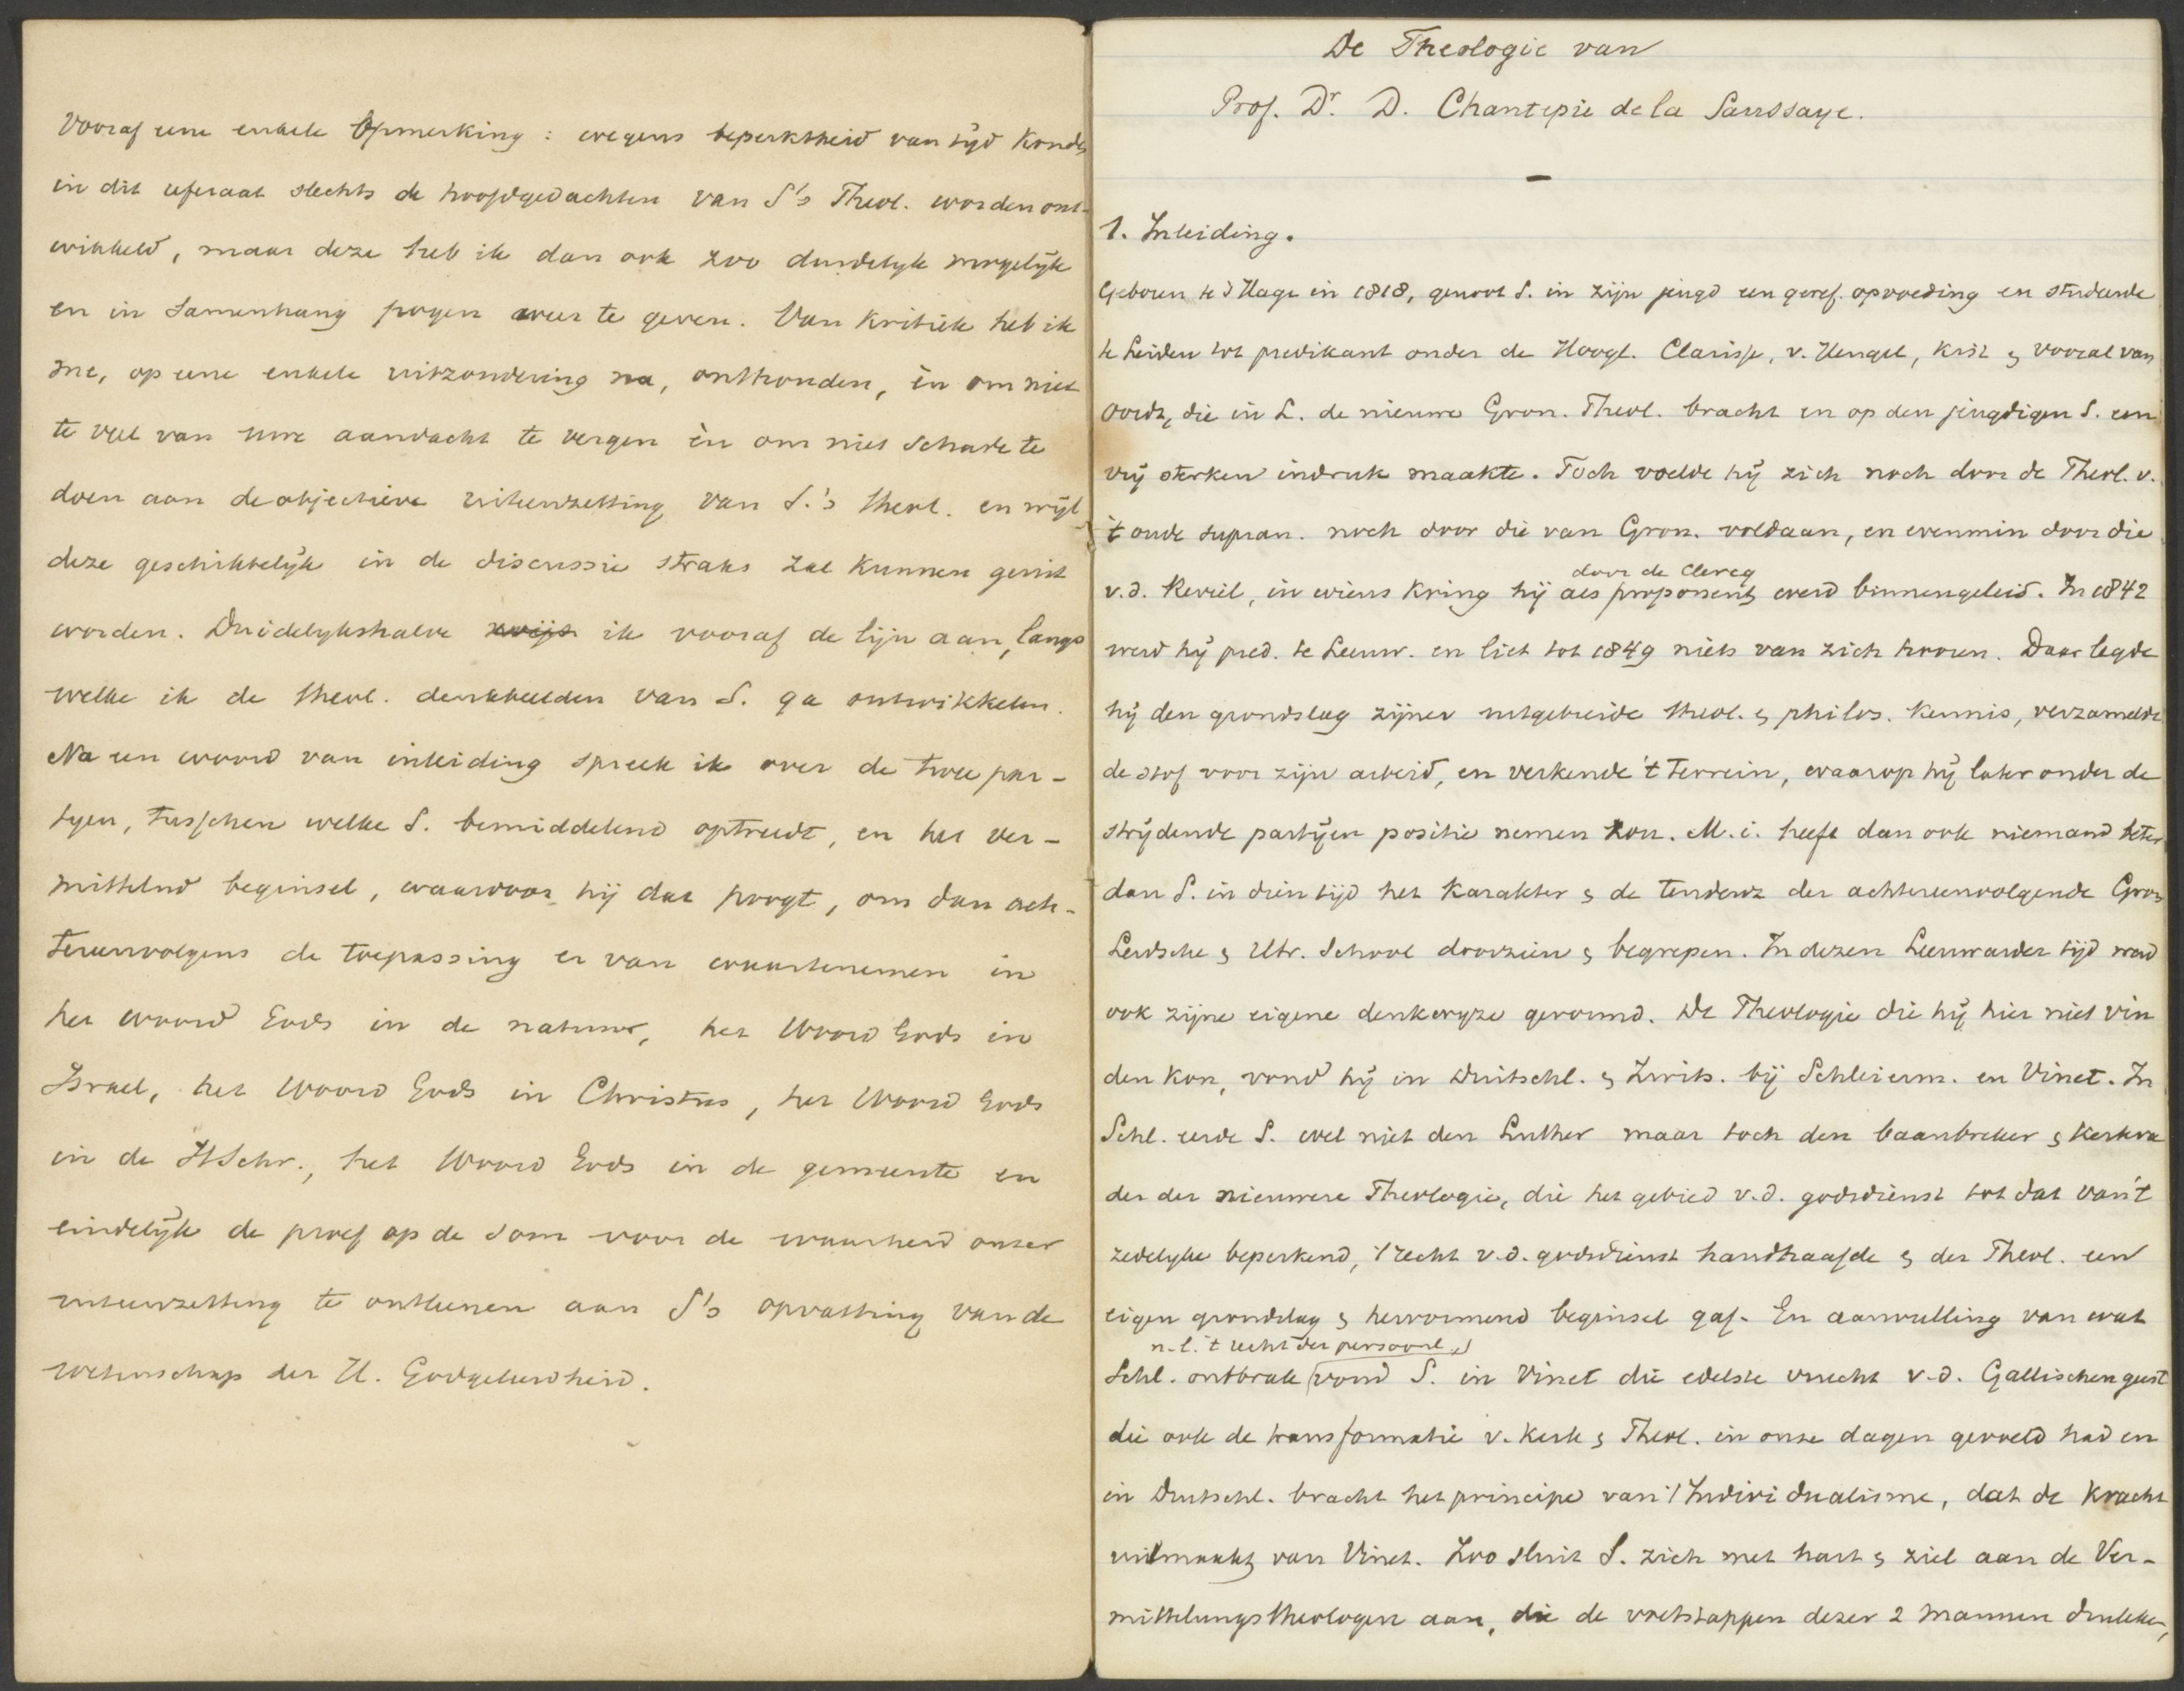 Vooraf eene enkele opmerking: wegens beperktheid van tijd konden
in dit referaat slechts de hoofdgedachten van S's Theol. worden ont-
wikkeld, maar deze heb ik dan ook zoo duidelijk mogelijk
en in samenhang pogen weer te geven. Van kritiek heb ik
me, op eene enkele uitzondering na, onthouden, èn om niet
te veel van uwe aandacht te vergen èn om niet schade te
doen aan de objectieve uiteenzetting van S.'s theol. en wijl
deze geschikkelijk in de discussie straks zal kunnen geuit
worden. Duidelijkshalve wijs ik vooraf de lijn aan, langs
welke ik de theol. denkbeelden van S. ga ontwikkelen.
Na een woord van inleiding spreek ik over de twee par-
tijen, tusschen welke S. bemiddelend optreedt, en het ver-
mittelnd beginsel, waardoor hij dat poogt, om dan ach-
tereenvolgens de toepassing er van waartenemen in
het woord Gods in de natuur, het Woord Gods in
Israel, het Woord Gods in Christus, het Woord Gods
in de HSchr., het Woord Gods in de gemeente en
eindelijk de proef op de som voor de waarheid onzer
uiteenzetting te ontleenen aan S's opvatting van de
wetenschap der H. Godgeleerdheid.
De Theologie van
Prof. Dr. D. Chantepie de la Saussaye.
—
1. Inleiding.
Geboren te 's Hage in 1818, genoot S. in zijn jeugd een geref. opvoeding en studeerde
te Leiden tot predikant onder de Hoogl. Clarisse, v. Hengel, Kist & vooral van
Oordt, die in L. de nieuwe Gron. Theol. bracht en op den jeugdigen S. een
vrij sterken indruk maakte. Toch voelde hij zich noch door de Theol. v.
't oude supran. noch door die van Gron. voldaan, en evenmin door die
v.d. Reveil, in wiens kring hij als proponent door de Clercq werd binnengeleid. In 1842
werd hij pred. te Leeuw. en liet tot 1849 niets van zich hooren. Daar legde
hij den grondslag zijner uitgebreide theol. & philos. kennis, verzamelde
de stof voor zijn arbeid, en verkende 't terrein, waarop hij later onder de
strijdende partijen positie nemen zou. M.i. heeft dan ook niemand beter
dan S. in dien tijd het karakter & de tendenz der achtereenvolgende Gron
Leidsche & Utr. School doorzien & begrepen. In dezen Leeuwarder tijd werd
ook zijne eigene denkwijze gevormd. De Theologie die hij hier niet vin
den kon, vond hij in Duitschl. & Zwits. bij Schleierm. en Vinet. In
Schl. eerde S. wel niet den Luther maar toch den baanbreker & kerkva
der der nieuwere Theologie, die het gebied v.d. godsdienst tot dat van 't
zedelijke beperkend, 't recht v.d. godsdienst handhaafde & der Theol. een
eigen grondslag & hervormend beginsel gaf. En aanvulling van wat
n.l. 't recht der persoonl.
Schl. ontbrak vond S. in Vinet die edelste vrucht v.d. Gallischen geest
die ook de transformatie v. kerk & Theol. in onze dagen gevoeld had en
in Duitschl. bracht het principe van 't Individualisme, dat de kracht
uitmaakt van Vinet. Zoo sluit S. zich met hart & ziel aan de Ver-
mittelungstheologen aan, die de voetstappen dezer 2 mannen drukken,